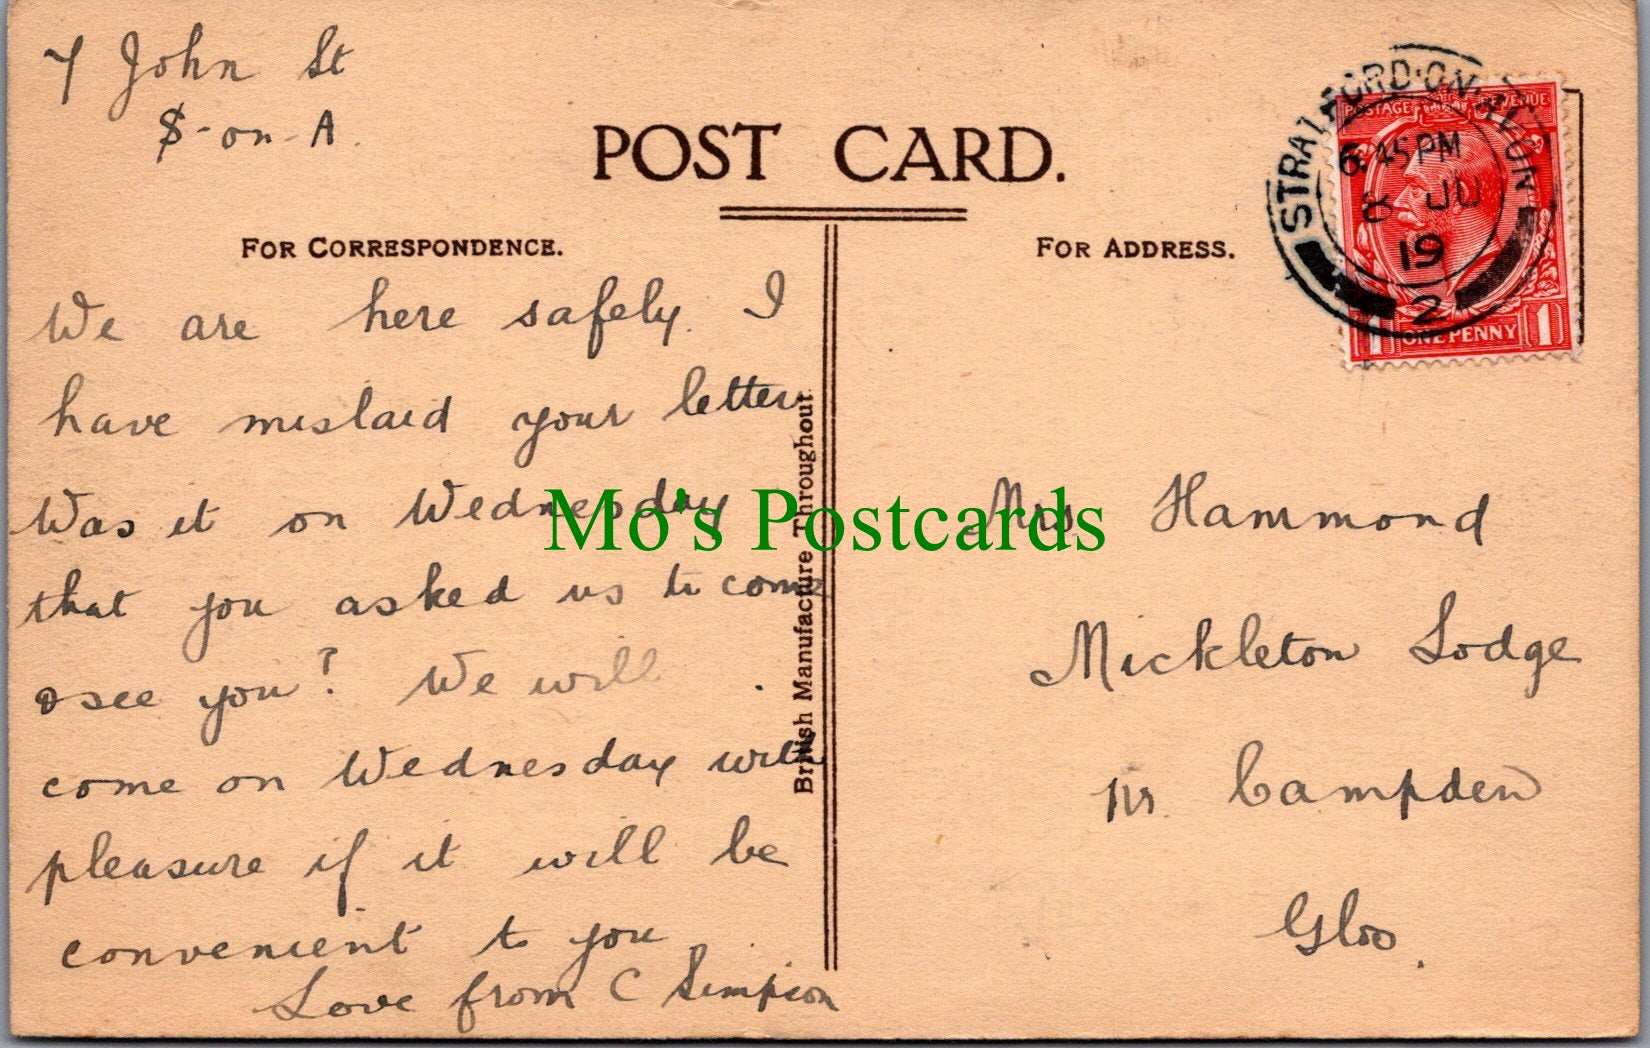 7 John St
S-on-A.
POST CARD.
FOR CORRESPONDENCE.
FOR ADDRESS.
We are here safely. I
have mislaid your letter
Was it on Wednesday
that you asked us to come
& see you? We will
come on Wednesday with
pleasure if it will be
convenient to you
Love from C Simpson
British Manufacture Throughout.
Mo's Postcards
Mrs Hammond
Mickleton Lodge
Nr. Campden
Glos.
STRATFORD-ON-AVON
6.45 PM
8 JU
19
2
POSTAGE REVENUE
1 ONE PENNY 1